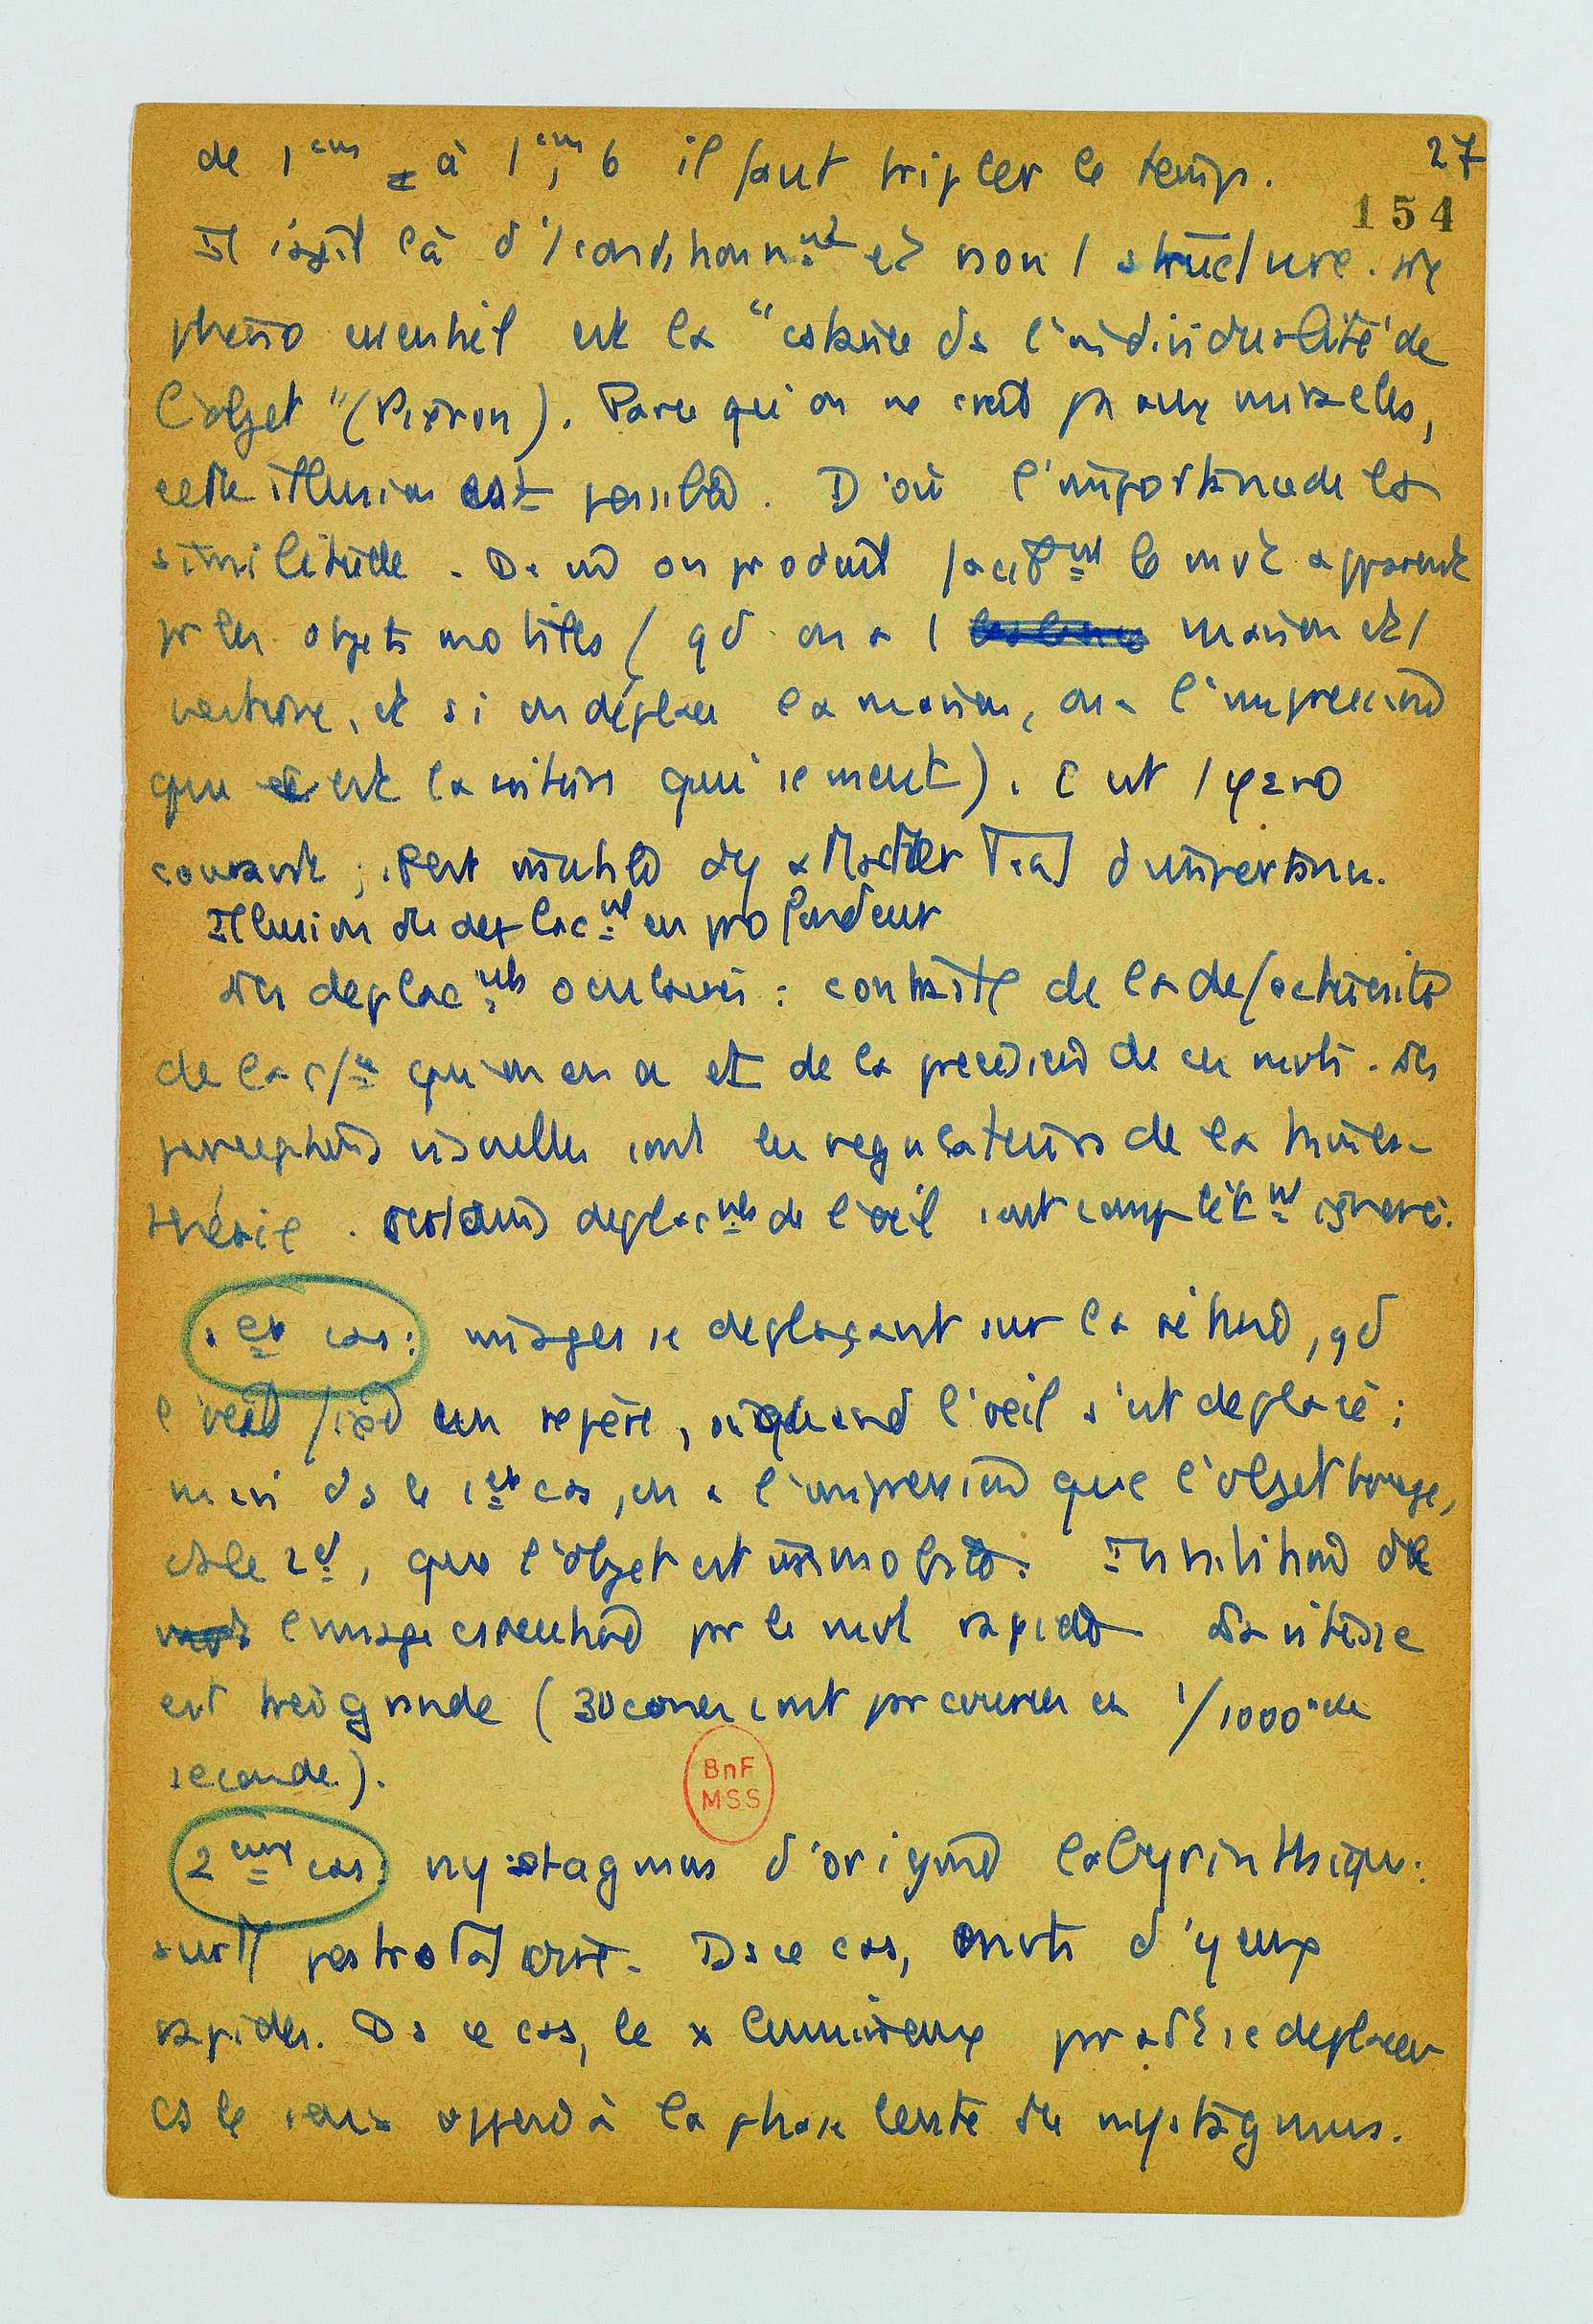 27
154
de 1 cm à 1 cm, 6 il faut tripler le temps.
Il s'agit là d'1 condionnnt et non 1 structure. Le
pheno essentiel est la "cstance ds l'individualité de
l'objet" (Piéron). Parce qu'on ne croit ps aux miracles,
cette illusion est possible. D'où l'importance de la
similitude. De md on produit facilt le mvt apparent
pr les objets mobiles (qd on a 1 maison et 1
voiture, et si on déplace la maison, on a l'impression
que c'est la voiture qui se meut). C'est 1 φeno
courant ; il est inutile d'y
Illusion de deplact en profondeur
Les deplacts oculaires : contraste de la defectuosité
de la qu'on en a et de la precision de ces mvts. Les
perceptions visuelles sont les regulateurs de la kinés-
thésie. deplacts de l'oeil sont complètt ignorés.
1er cas : images se deplaçant sur la rétine, qd
l'oeil fixe un repère, ou quand l'oeil s'est deplacé ;
mais ds le 1er cas, on a l'impression que l'objet bouge,
ds le 2d, que l'objet est immobile. Inhibition de
l'image essentielle pr le mvt rapide La vitesse
est très grande (30 cones sont parcourus en 1/1000e de
seconde).
BnF
MSS
2eme cas : nystagmus d'origine labyrinthique :
surtt postrotatoire. Ds ce cas, mvts d'yeux
rapides. Ds ce cas, le x lumineux se deplacer
ds le sens opposé à la phase lente du nystagmus.